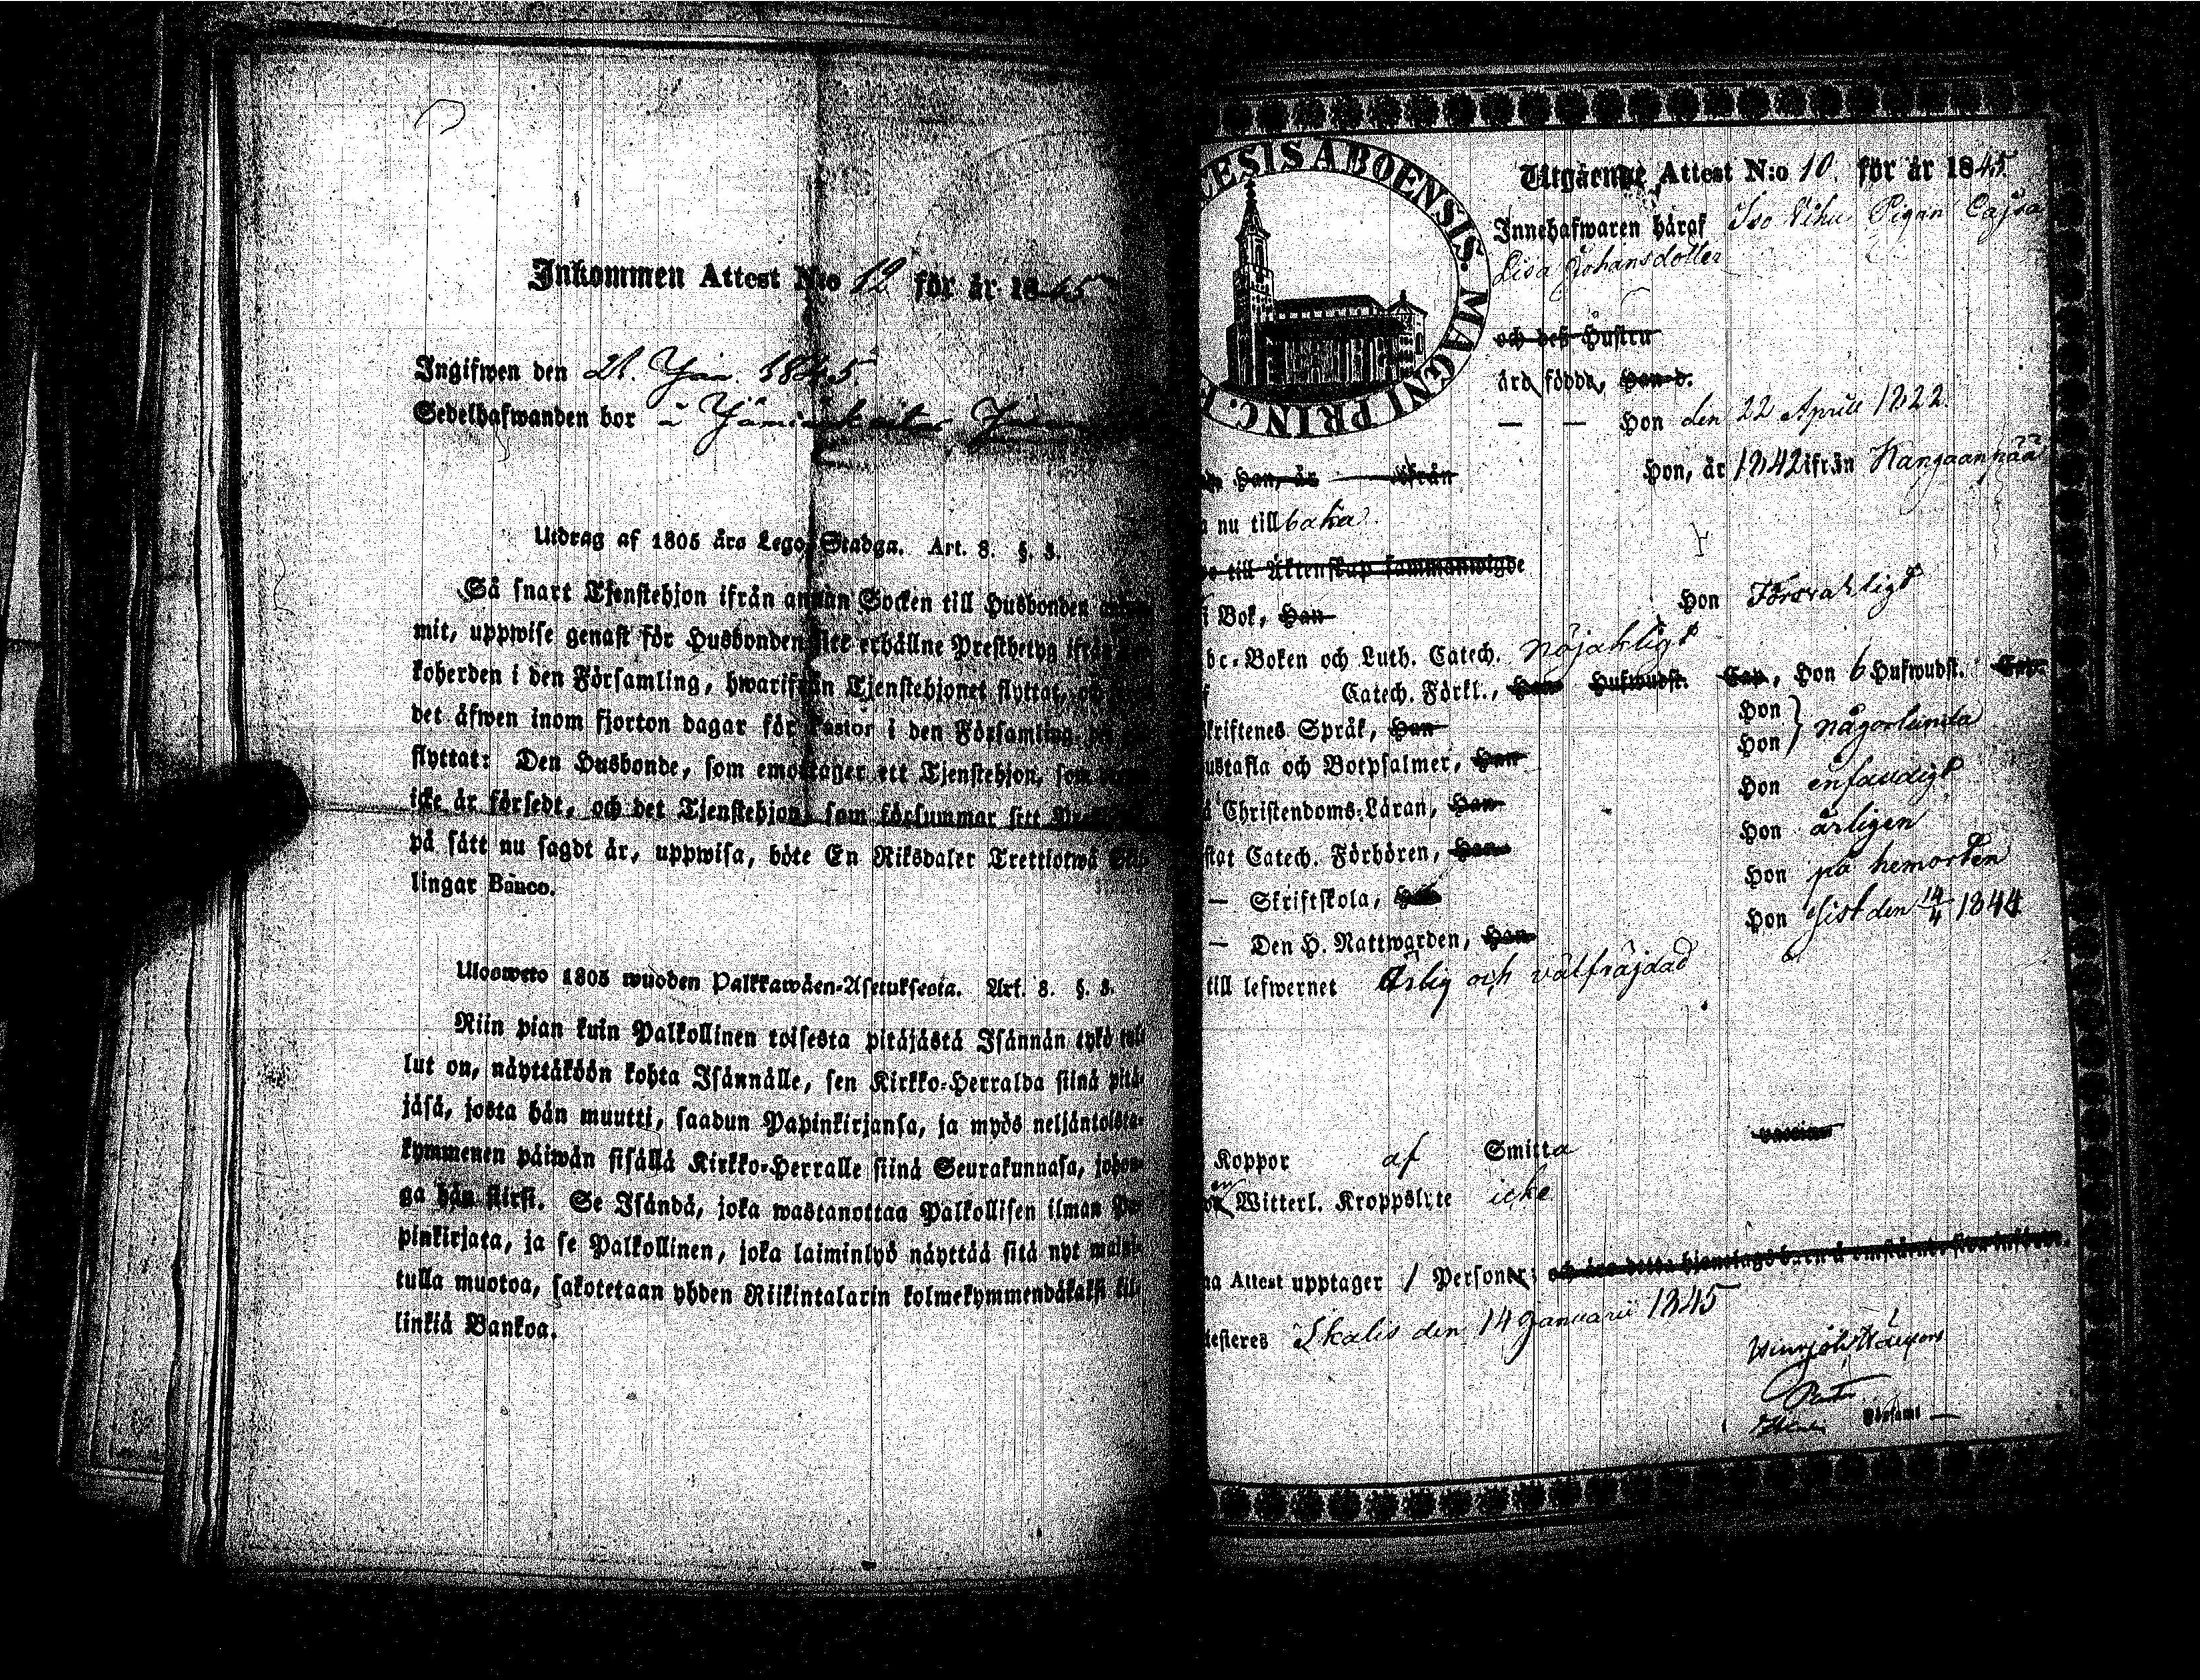 Inkommen Attest N:o 12 för år 1845
Ingifwen den 21. Jan. 1845
Sedelhafwanden bor i
Utdrag af 1805 års Lego-Stadga. Art. 8. §. 3.
Så snart Tjenstehjon ifrån annan Socken till Husbonden
mit, uppwise genast för Husbonden sitt erhållne Prestbetyg ifrån
koherden i den Församling, hwarifrån Tjenstehjonet flyttat, och
det äfwen inom fjorton dagar för Pastor i den Församling, dit
flyttat: Den Husbonde, som emottager ett Tjenstehjon, som
icke är försedt, och det Tjenstehjon, som försummar sitt
på sätt nu sagdt är, uppwisa, böte En Riksdaler Trettiotwå
lingar Banco.
Ulosweto 1805 wuoden Palkkawäen-Asetuksesta. Art. 8. §. 3.
Niin pian kuin Palkollinen toisesta pitäjästä Isännän tykö tul-
lut on, näyttäköön kohta Isännälle, sen Kirkko-Herralda siinä pitä-
jäsä, josta hän muutti, saadun Papinkirjansa, ja myös neljäntoista-
kymmenen päiwän sisällä Kirkko-Herralle siinä Seurakunnasa, johon-
ga hän siirsi. Se Isändä, joka wastanottaa Palkollisen ilman Pa-
pinkirjata, ja se Palkollinen, joka laiminlyö näyttää sitä nyt maini-
tulla muotoa, sakotetaan yhden Riikintalarin kolmekymmendäkaksi kil-
linkiä Bankoa.
ESIS ABOENSIS. MAGNI PRINC.
Utgående Attest N:o 10. för år 1845.
Innehafwaren häraf Iso Vihu Pigan Cajsa
Lisa Johansdotter
och deß Hustru
äro födde, Han d.
— — Hon den 22 Aprill 1822.
Han, år ifrån Hon, år 1842 ifrån Kangaanpää
nu tillbaka
till Äktenskap sammanwigde
i Bok, Han Hon Försvarligt
bc-Boken och Luth. Catech. nöjaktligt
Catech. Förkl., Han Hufwudst. Cap, Hon 6 Hufwudst. Cap.
kriftenes Språk, Han Hon
ustafla och Botpsalmer, Han Hon någorlunda
Christendoms-Läran, Han Hon enfaldigt
stat Catech. Förhören, Han Hon årligen
— Skriftskola, Han Hon på hemorten
— Den H. Nattwarden, Han Hon sist den 14/4 1844
till lefwernet Ärlig och välfräjdad
Koppor af Smitta vaccine
en Witterl. Kroppslyte icke
na Attest upptager 1 Personer;
testeres Ikalis den 14 Januarii 1845
Församl —